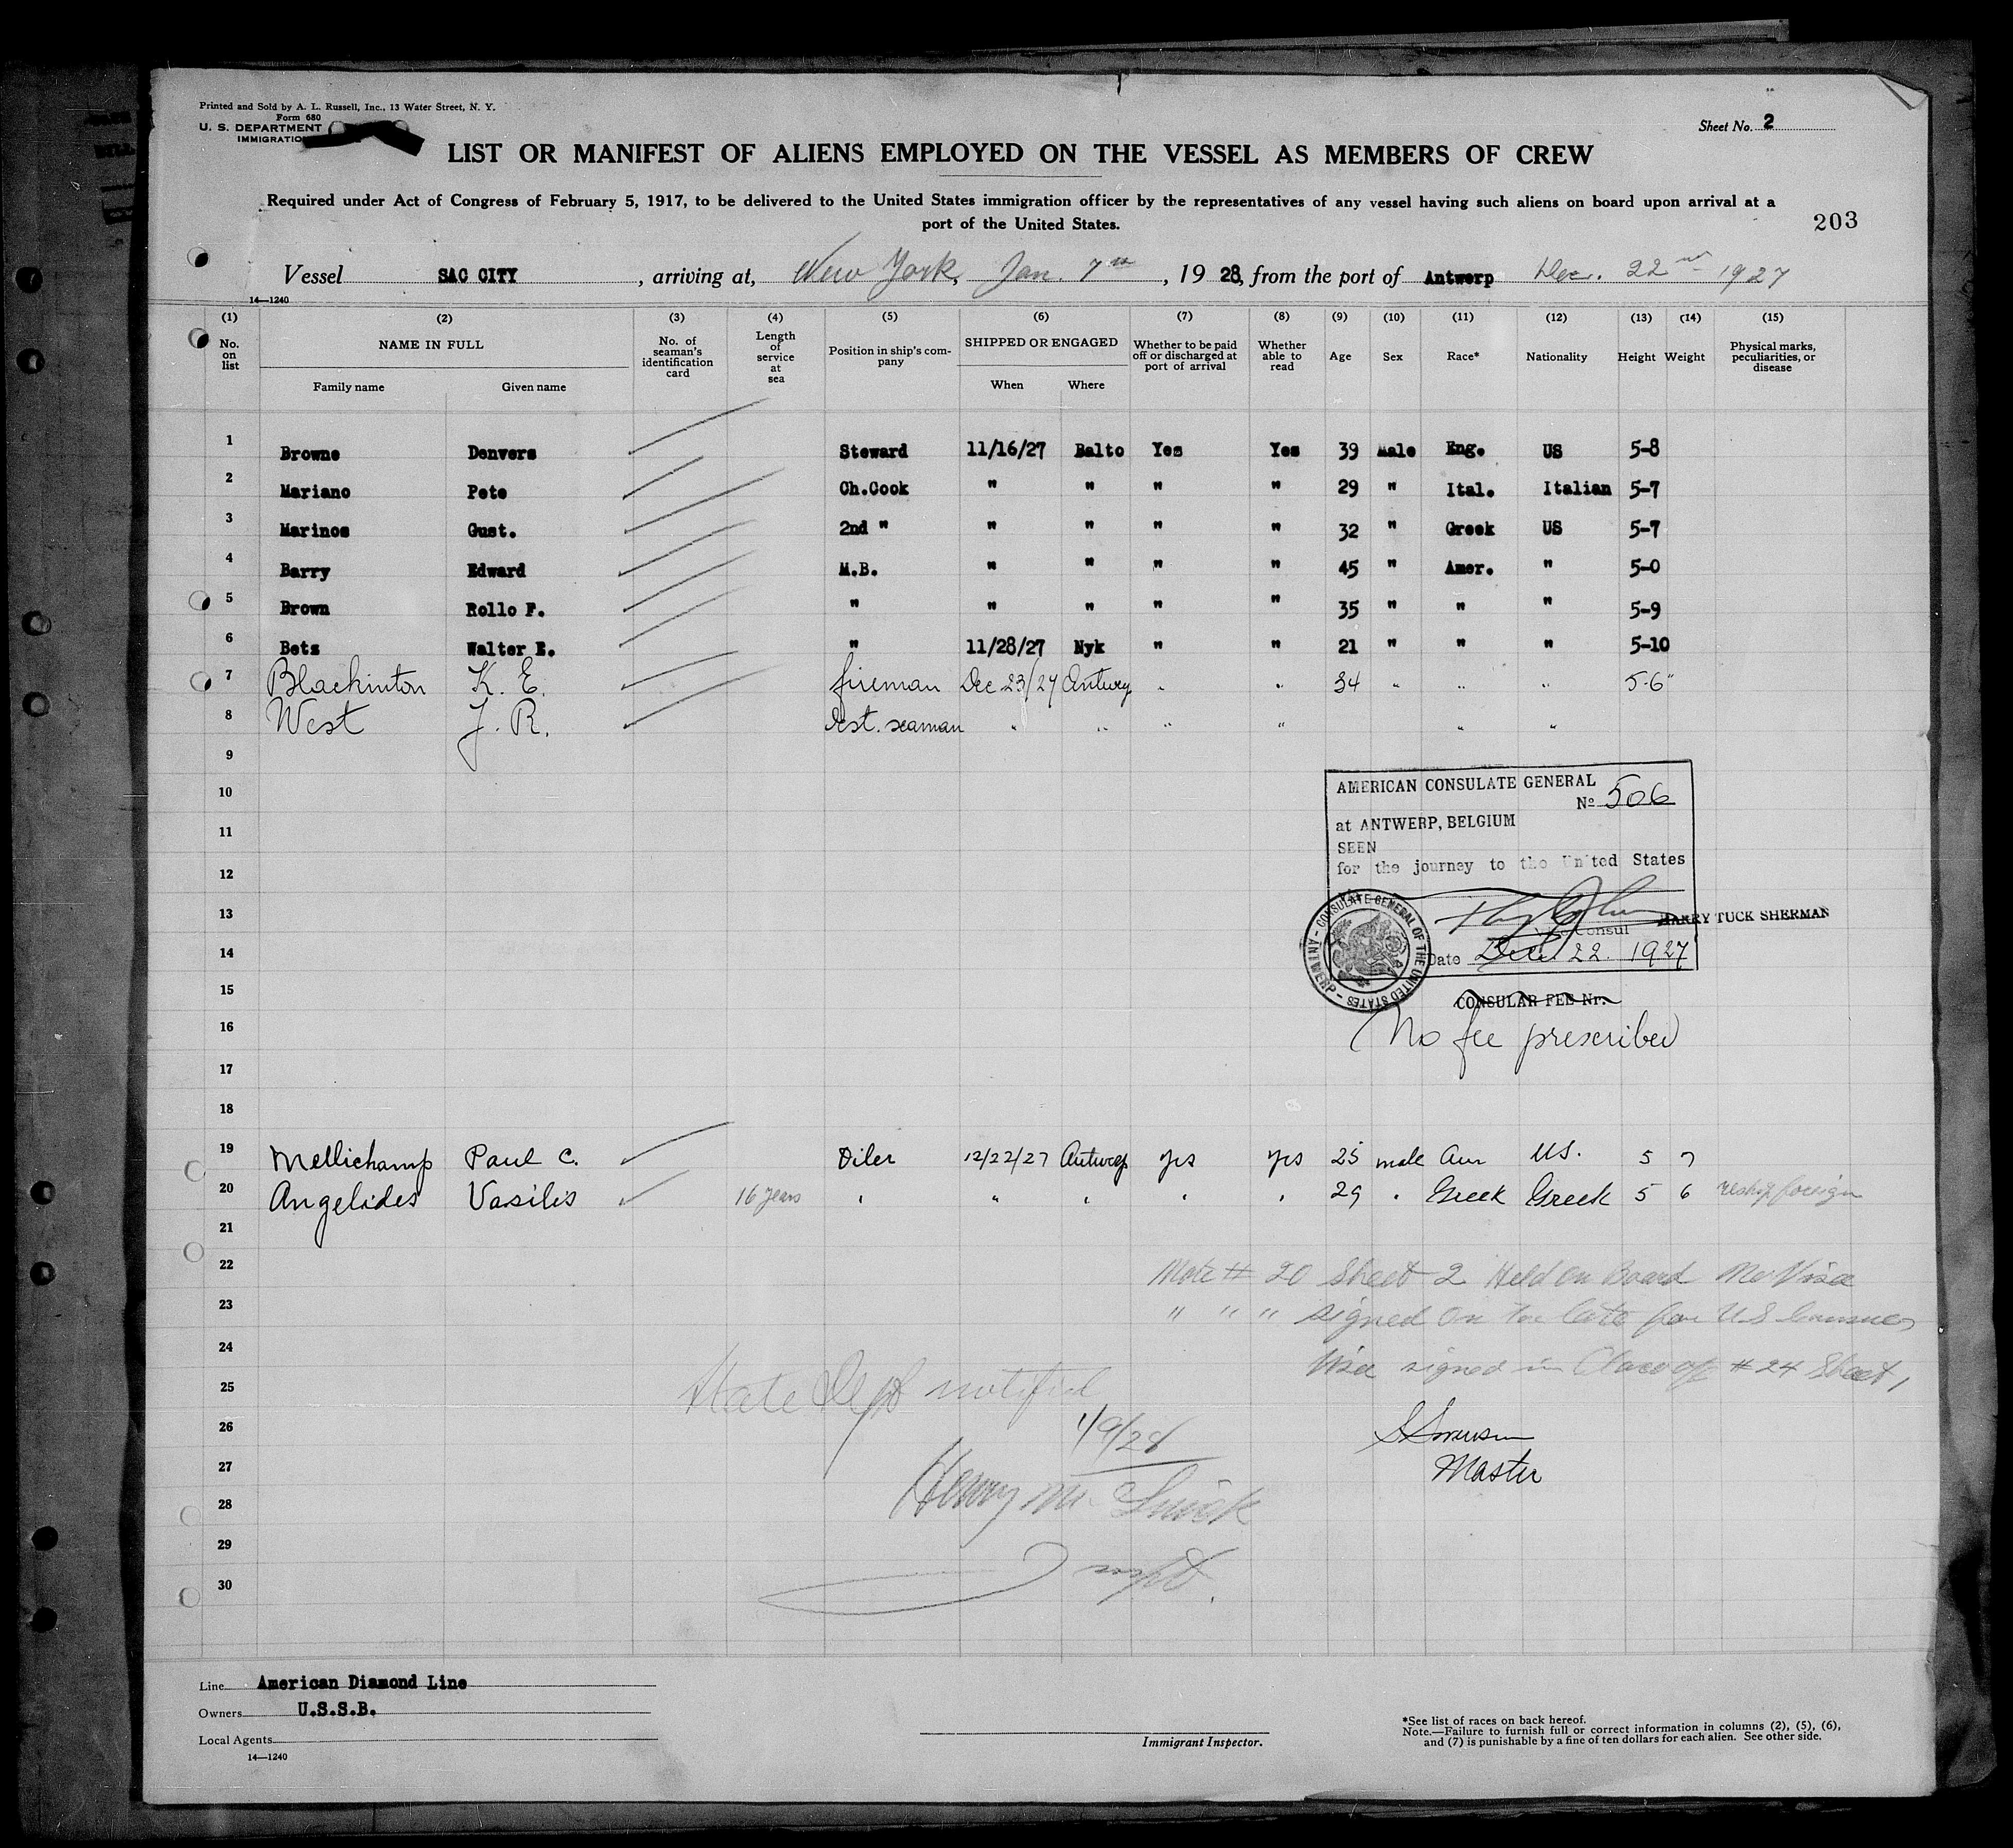 Printed and Sold by A. L. Russell, Inc., 13 Water Street, N. Y.
Form 680
U. S. DEPARTMENT
IMMIGRATIO
Sheet No. 2
LIST OR MANIFEST OF ALIENS EMPLOYED ON THE VESSEL AS MEMBERS OF CREW
Required under Act of Congress of February 5, 1917, to be delivered to the United States immigration officer by the representatives of any vessel having such aliens on board upon arrival at a
port of the United States.
203
Vessel SAC CITY, arriving at, New York, Jan. 7th, 1928, from the port of Antwerp Dec. 22nd 1927
14—1240
(1) (2) (3) (4) (5) (6) (7) (8) (9) (10) (11) (12) (13) (14) (15)
No. on list NAME IN FULL Family name Given name No. of seaman's identification card Length of service at sea Position in ship's company SHIPPED OR ENGAGED When Where Whether to be paid off or discharged at port of arrival Whether able to read Age Sex Race* Nationality Height Weight Physical marks, peculiarities, or disease
1 Browne Denvers Steward 11/16/27 Balto Yes Yes 39 Male Eng. US 5-8
2 Mariano Pete Ch.Cook " " " " 29 " Ital. Italian 5-7
3 Marinos Gust. 2nd " " " " " 32 " Greek US 5-7
4 Barry Edward M.B. " " " " 45 " Amer. " 5-0
5 Brown Rollo F. " " " " " 35 " " " 5-9
6 Betz Walter E. " 11/28/27 Nyk " " 21 " " " 5-10
7 Blackinton K. E. fireman Dec 23/27 Antwerp " " 34 " " " 5-6"
8 West J. R. dest. seaman " " " " " "
9
10
11
12
13
14
15
16
17
18
AMERICAN CONSULATE GENERAL
No 506
at ANTWERP, BELGIUM
SEEN
for the journey to the United States
HARRY TUCK SHERMAN
Vice Consul
Date Dec 22. 1927
CONSULATE GENERAL OF THE UNITED STATES - ANTWERP -
CONSULAR FEE Nr.
No fee prescribed
19 Mellichamp Paul C. Oiler 12/22/27 Antwerp yes yes 25 male Am US. 5 7
20 Angelides Vasilis 16 years " " " " " 29 " Greek Greek 5 6 reship foreign
21
22 Note # 20 Sheet 2 Held on Board No Visa
23 " " " signed on too late for US Consuls
24 Visa signed in Place of # 24 Sheet 1
25 State Dept notified
26 1/9/28
S Sorensen
27 Master
28 Henry M.
29
30 inspt.
Line American Diamond Line
Owners U.S.S.B.
Local Agents
14—1240
Immigrant Inspector.
*See list of races on back hereof.
Note.—Failure to furnish full or correct information in columns (2), (5), (6),
and (7) is punishable by a fine of ten dollars for each alien. See other side.